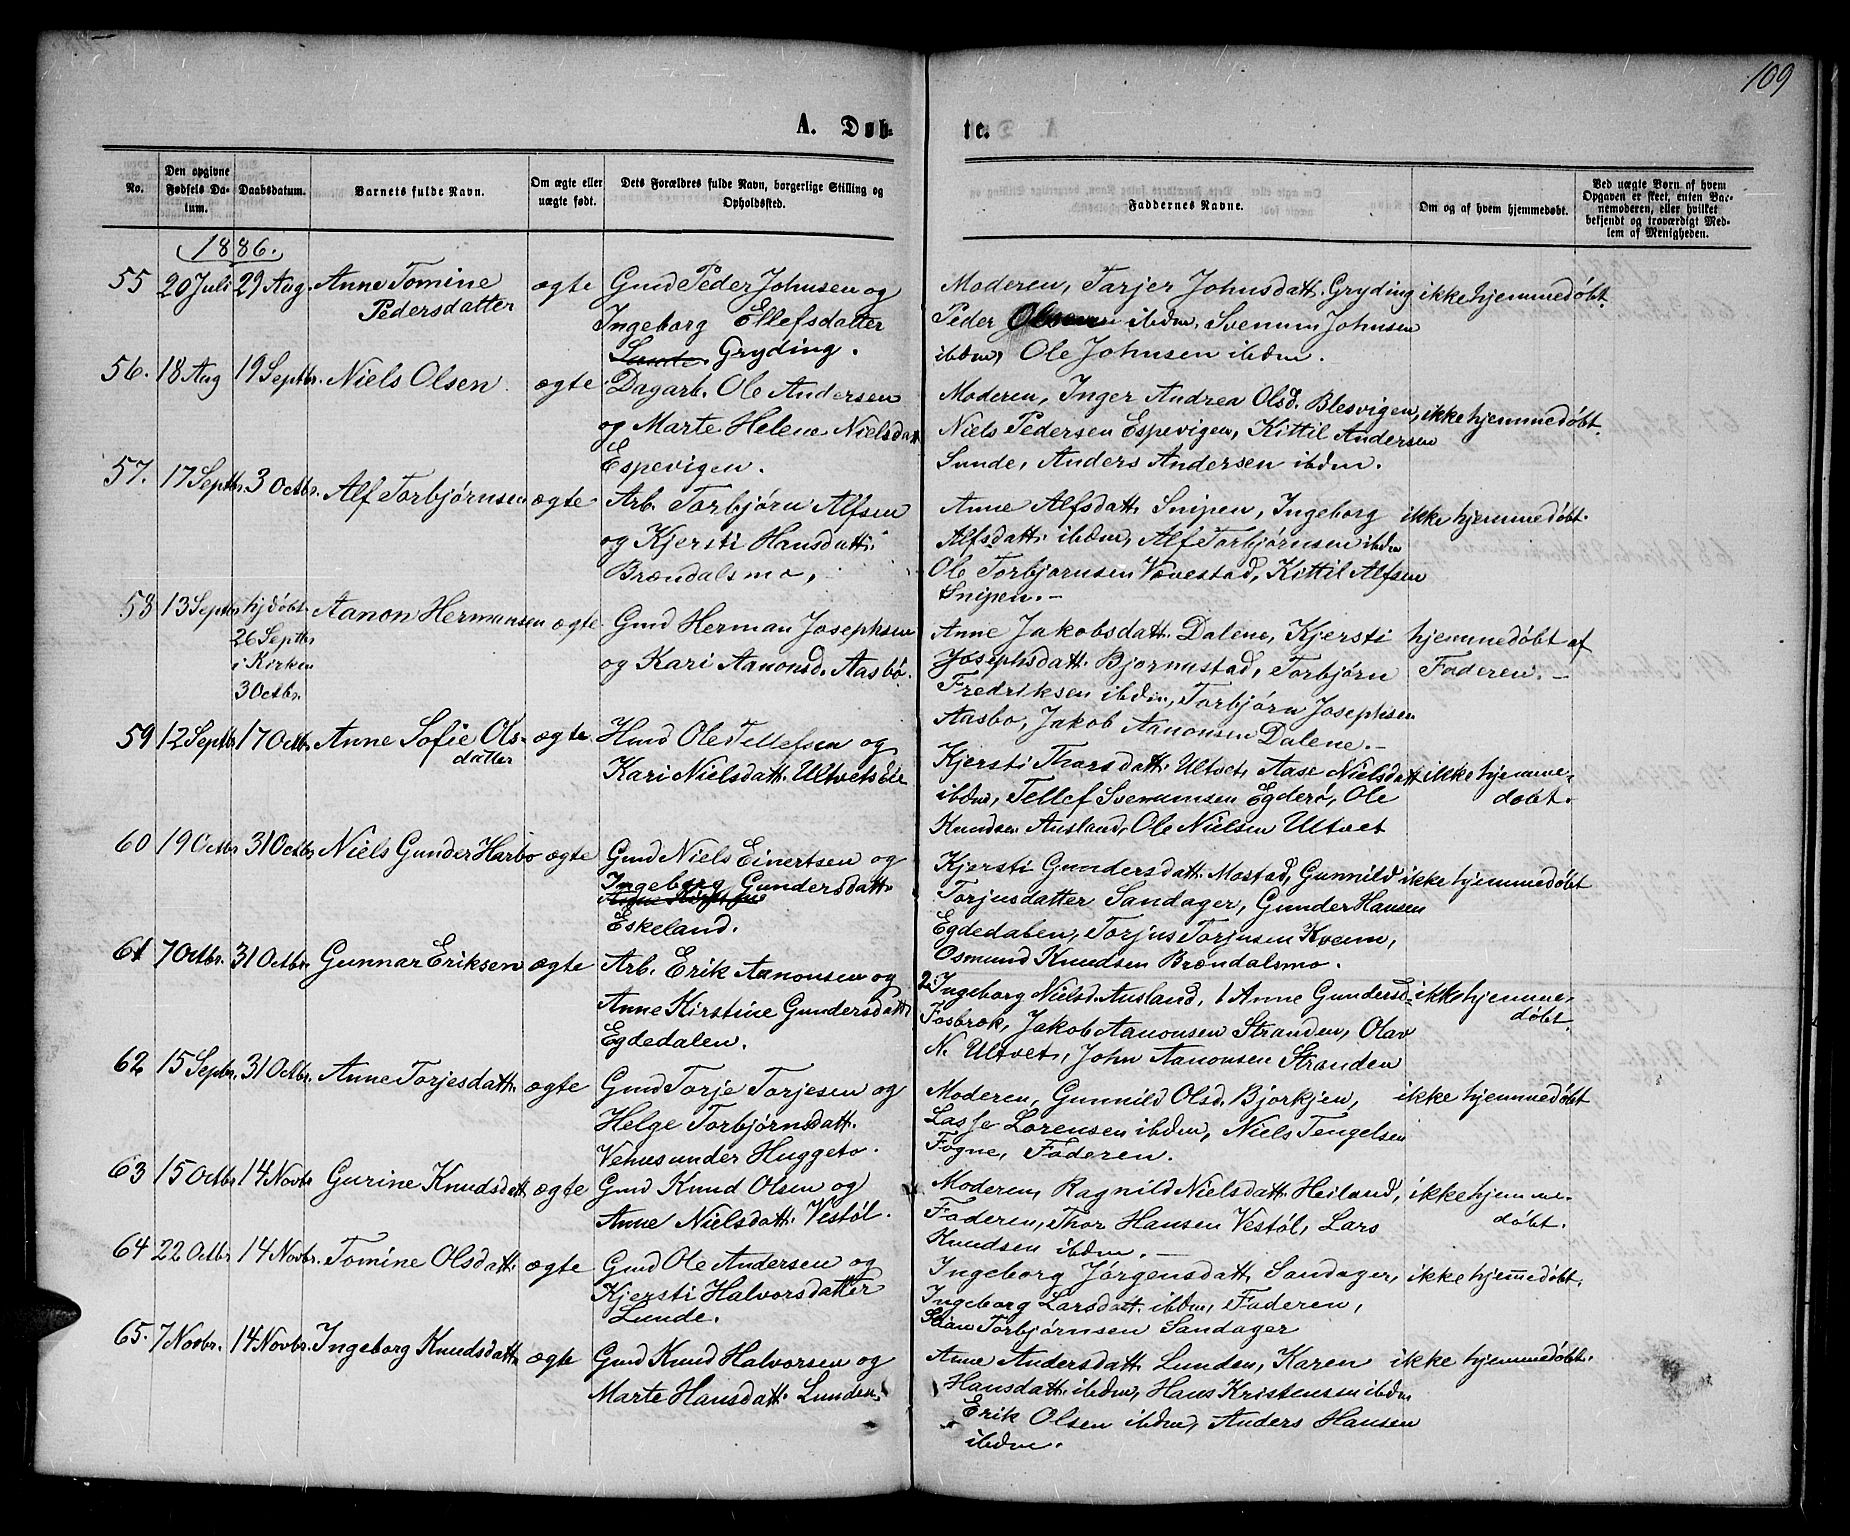 109
A. Døb-
te.
No.
Den opgivne Fødsels Datum.
Daabsdatum.
Barnets fulde Navn.
Om ægte eller uægte født.
Dets Forældres fulde Navn, borgerlige Stilling og Opholdssted.
Faddernes Navne.
Om og af hvem hjemmedøbt.
Ved uægte Børn af hvem Opgaven er skeet, enten Barnemoderen, eller hvilket bekjendt og troværdigt Medlem af Menigheden.
1886.
55 20 Juli 29 Aug. Anne Tomine Pedersdatter ægte
Gmd Peder Johnsen og
Ingeborg Ellefsdatter
Gryding.
Moderen, Tarjer Johnsdatt. Gryding
Peder Olsen ibdm, Svenum Johnsen
ibdm, Ole Johnsen ibdm.
ikke hjemmedøbt.
56. 18 Aug 19 Septbr. Niels Olsen. ægte
Dagarb. Ole Andersen
og Marte Helene Nielsdatt
Espevigen.
Moderen, Inger Andrea Olsd. Blesvigen,
Niels Pedersen Espevigen, Kittil Andersen
Sunde, Anders Andersen ibdm.
ikke hjemmedøbt.
57. 17 Septbr. 3 Octbr. Alf Torbjørnsen ægte
Arb. Torbjørn Alfsen
og Kjersti Hansdatt.
Brændalsmo,
Anne Alfsdatt. Snipen, Ingeborg
Alfsdatt. ibdm, Alf Torbjørnsen ibdm
Ole Torbjørnsen Vævestad, Kittil Alfsen
Snipen.-
ikke hjemmedøbt.
58 13 Septbr hjdøbt 26 Septbr i Kirken 3 Octbr. Aanon Hermansen ægte
Gmd Herman Josephsen
og Kari Aanonsd. Aasbø.
Anne Jakobsdatt. Dalene, Kjersti
Josephsdatt. Bjørnnstad, Torbjørn
Fredriksen ibdm, Torbjørn Josephsen
Aasbo, Jakob Aanonsen Dalene.-
hjemmedøbt af
Faderen.-
59 12 Septbr 17 Octbr. Anne Sofie Olsdatter ægte.
Hmd Ole Tellefsen og
Kari Nielsdatt. Ultvetseie
Kjersti Tharsdatt. Ultvet, Aase Nielsdatt
ibdm, Tellef Svenumsen Egderø, Ole
Knudsen Ausland, Ole Nielsen Ultvet
ikke hjemmedøbt.
60 19 Octbr 31 Octbr Niels Gunder Harbo ægte
Gmd Niels Einertsen og
Ingeborg Gundersdatt.
Eskeland.
Kjersti Gundersdatt. Mostad, Gunnild
Torjusdatter Sandager, Gunder Hansen
Egdedalen, Torjus Torjusen Kveim,
Osmund Knudsen Brændalsmo.
ikke hjemmedøbt
61 7 Octbr. 31 Octbr. Gunnar Eriksen ægte
Arb. Erik Aanonsen og
Anne Kirstine Gundersdatt
Egdedalen.
2. Ingeborg Nielsd. Ausland, 1 Anne Gundersd.
Fosbrok, Jakob Aanonsen Stranden, Olav
N. Ultvet, John Aanonsen Stranden
ikke hjemmedøbt.
62 15 Sepbr. 31 Octbr. Anne Torjesdatt. ægte
Gmd Torje Torjesen og
Helge Torbjørnsdatt.
Vehus under Huggeto.
Moderen, Gunnild Olsd. Bjorkjen,
Lasse Lorensen ibdm, Niels Tengelsen
Fogne, Faderen.
ikke hjemmedøbt
63 15 Octbr 14 Novbr. Gurine Knudsdatt ægte
Gmd Knud Olsen og
Anne Nielsdatt. Vestøl.
Moderen, Ragnild Nielsdatt. Heiland,
Faderen, Thor Hansen Vestøl, Lars
Knudsen ibdm.-
ikke hjemmedøbt.
64 22 Octbr 14 Novbr. Tomine Olsdatt. ægte
Gmd Ole Andersen og
Kjersti Halvorsdatter
Lunde.
Ingeborg Jørgensdatt. Sandager,
Ingeborg Larsdatt. ibdm, Faderen,
Torbjørnsen Sandager
ikke hjemmedøbt.
65. 7 Novbr. 14 Novbr. Ingeborg Knudsdatt. ægte
Gmd Knud Halvorsen og
Marte Hansdatt. Lunden.
Anne Andersdatt. Lunden, Karen
Hansdatt. ibdm, Hans Kristensen ibdm
Erik Olsen ibdm, Anders Hansen
ibdm.
ikke hjemmedøbt.